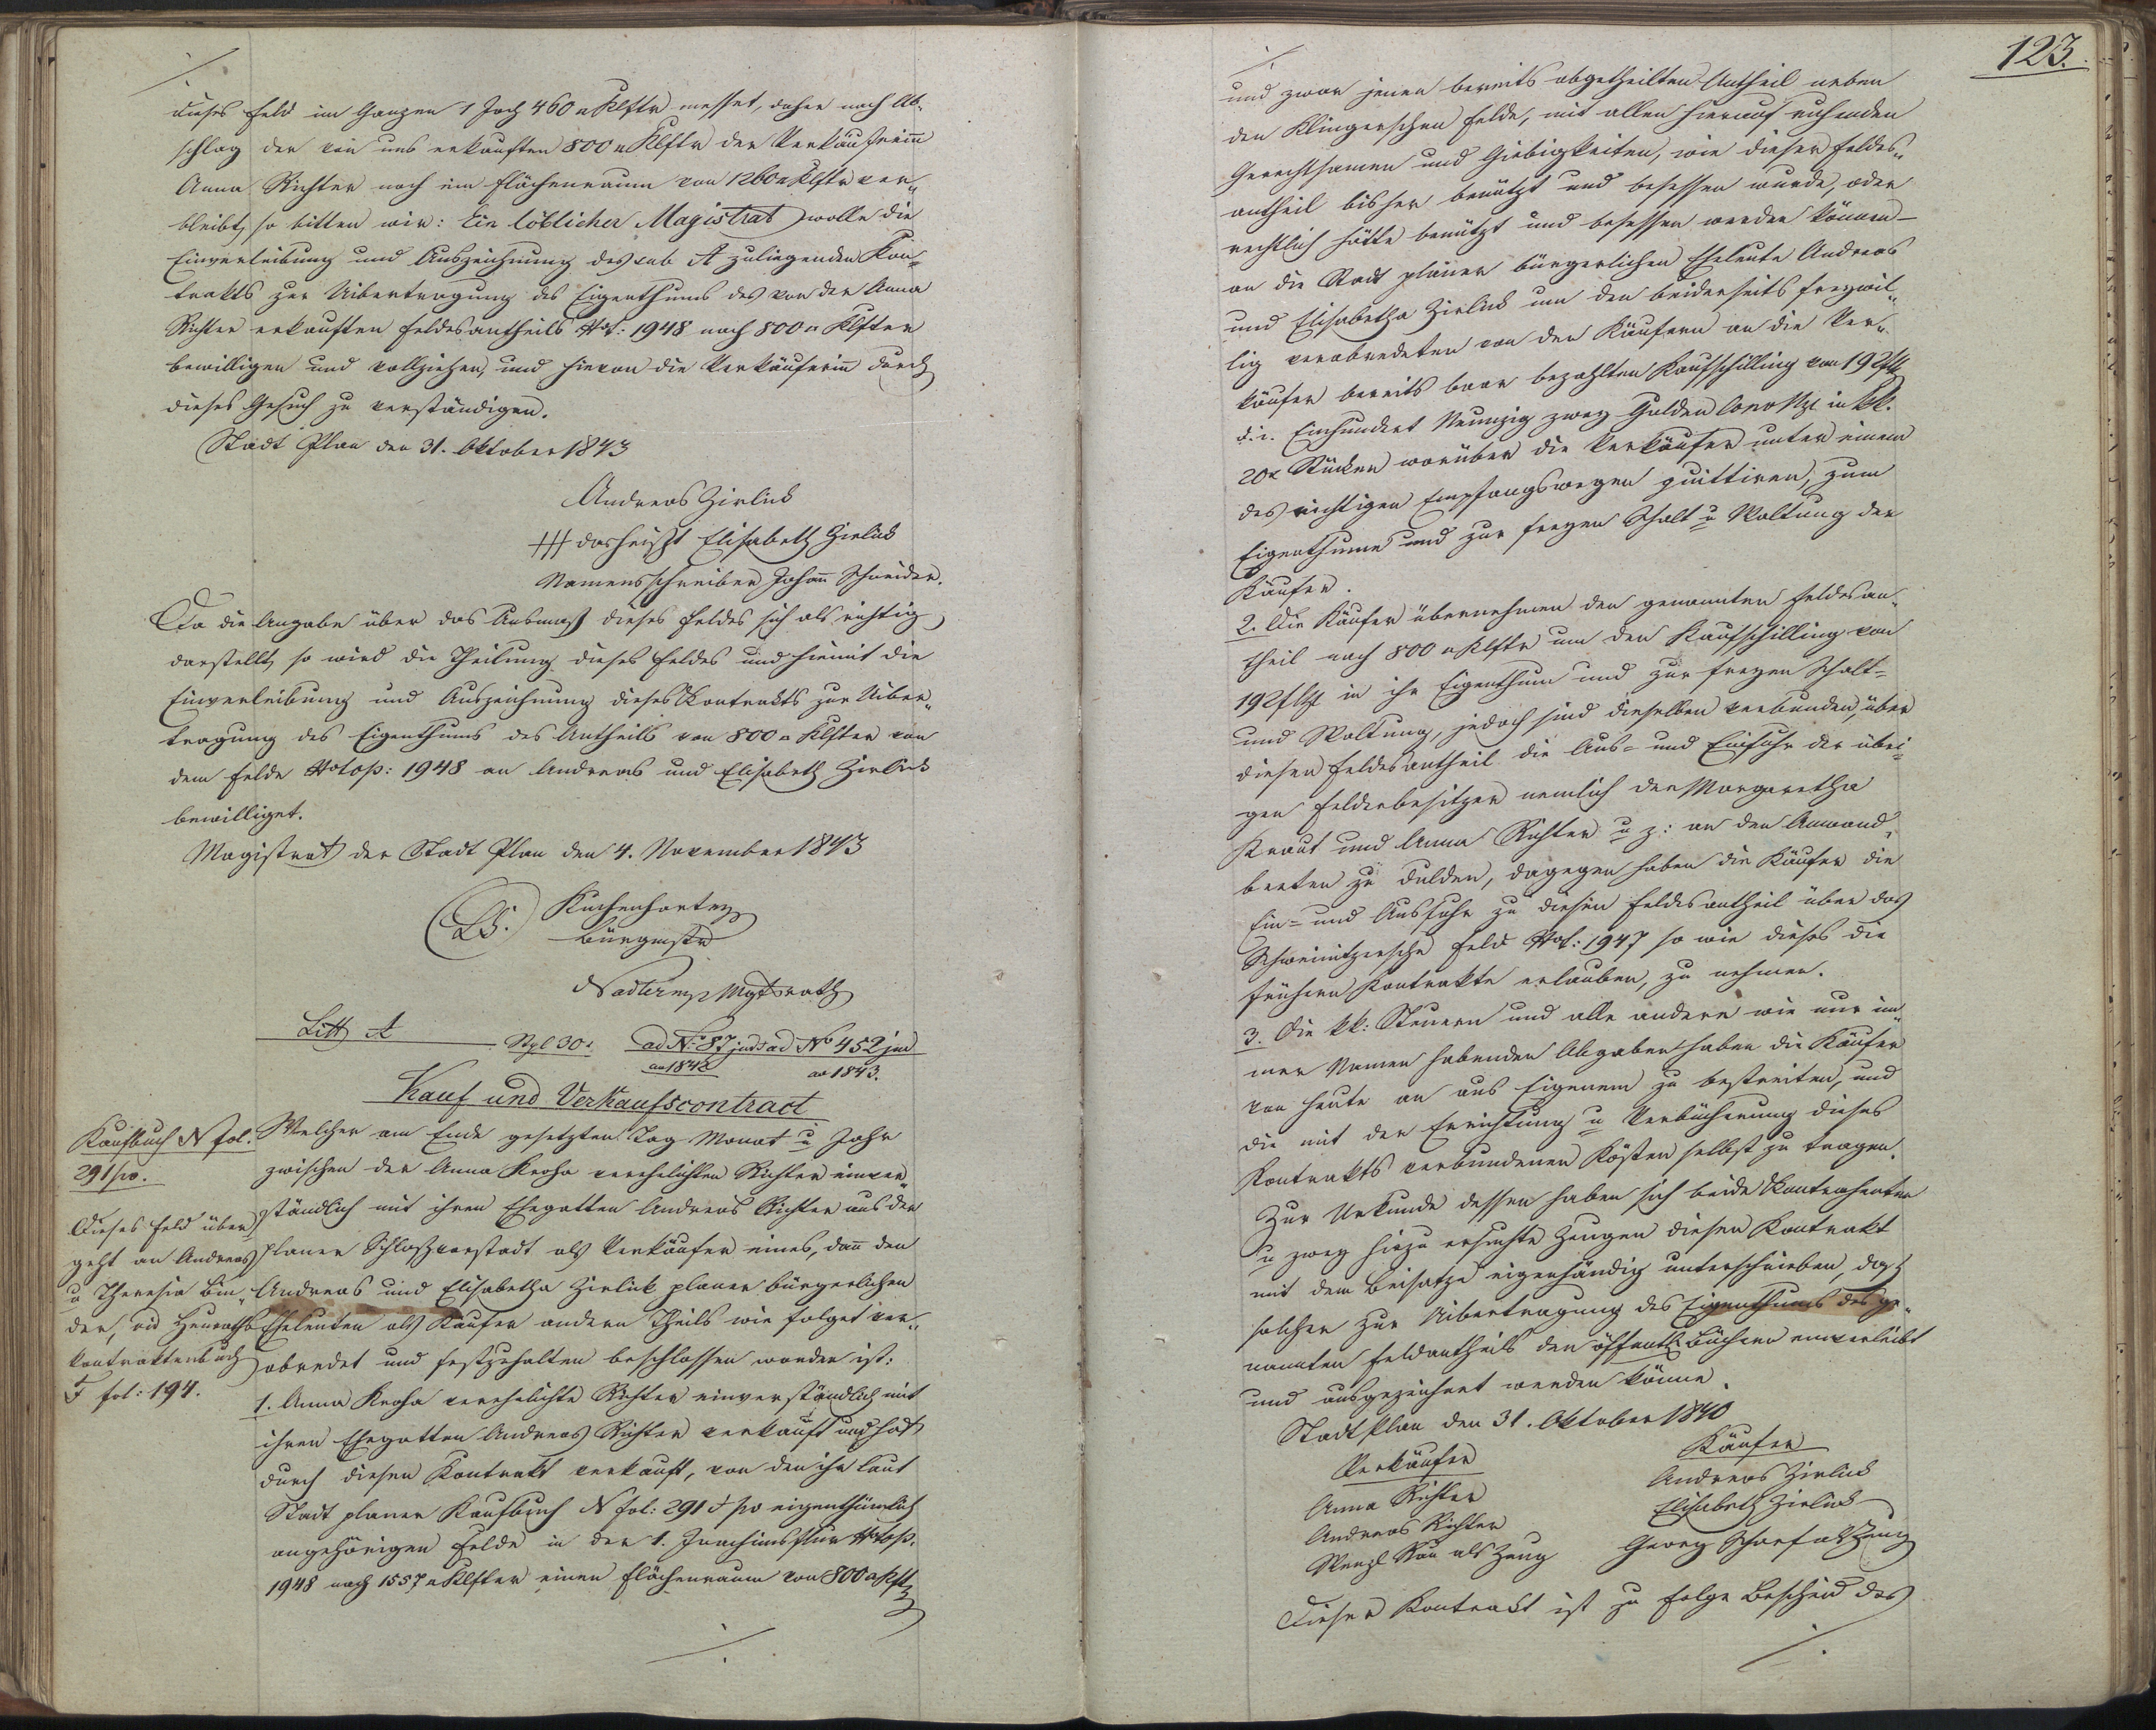 ./.
dieses Feld im Ganzen 1 Joch 460 □ Klftr messet, daher nach Ab-
schlag der von uns erkauften 800 □ Klftr der Verkäuferinn
Anna Richter noch ein Flächenraum von 1260 □ Klftr ver-
bleibt, so bitten wir: Ein löblicher Magistrat wolle die
Einverleibung und Auszeichnung des sub A zuliegenden Kon-
trakts zur Uibertragung des Eigenthums des von der Anna
Richter erkauften Feldesantheils Nof: 1948 nach 800 □ Klfter
bewilligen und vollziehen, und hievon die Verkäuferin durch
dieses Gesuch zu verständigen.
Stadt Plan den 31. Oktober 1843
Andreas Zirlick
+++ das heißt Elisabeth Zirlick
Namensschreiber Johann Schneider.
Da die Angabe über das Ausmaß dieses Feldes sich als richtig
darstellt, so wird die Theilung dieses Feldes und hiemit die
Einverleibung und Auszeichnung dieses Kontrakts zur Uiber-
tragung des Eigenthums des Antheils von 800 □ Klfter von
dem Felde Notop: 1948 an Andreas und Elisabeth Zirlick
bewilliget.
Magistrat der Stadt Plan den 4. November 1843
LS.
Bürgmstr
Mgtsrath
Litt A
Stpl 30x ad No 87 jud ad No 452 jud
ao 1842 ao 1843.
Kauf und Verkaufscontract
Kaufbuch N fol.
291 po.
Dieses Feld über
geht an Andreas
u Theresia Bin-
der, vid Heuraths
kontraktenbuch
F fol: 194.
Welcher am Ende gesetzten Tag Monat u Jahr
zwischen der Anna Kroha verehelichten Richter einver-
ständlich mit ihren Ehegatten Andreas Richter aus der
Planer Schloßvorstadt als Verkäufer eines, dann den
Andreas und Elisabetha Zirlick planer bürgerlichen
Eheleuten als Käufer andern Theils wie folget ver-
abredet und festzuhalten beschlossen worden ist:
1. Anna Kroha verehelichte Richter einverständlich mit
ihren Ehegatten Andreas Richter verkauft und hat
durch diesen Kontrakt verkauft, von den ihr laut
Stadt planer Kaufbuch N fol: 291 po eigenthümlich
angehörigen Felde in der 1. Joachimsflur Notop.
1948 nach 1557 □ Klfter einen Flächenraum von 800 □ Klft
./.
123.
./.
und zwar jenen bereits abgetheilten Antheil neben
den Klingerschen Felde, mit allen hierauf ruhenden
Gerechtsamen und Giebigkeiten, wie dieser Feldes-
antheil bisher benützt und besessen wurde, oder
rechtlich hätte benützt und besessen werden können –
an die Stadt planer bürgerlichen Eheleute Andreas
und Elisabetha Zirlick um den beiderseits freywil-
lig verabredeten von den Käufern an die Ver-
käufer bereits baar bezahlten Kaufschilling von 192 f
d. i. Einhundert Neunzig zwey Gulden Conv Mz in kk.
20x Stücken worüber die Verkäufer unter einem
des richtigen Empfangswegen quittiren, zum
Eigenthume und zur freyen Schalt u Waltung der
Käufer.
2. Die Käufer übernehmen den genannten Feldesan-
theil nach 800 □ Klftr um den Kaufschilling von
192 f in ihr Eigenthum und zur freyen Schalt-
und Waltung, jedoch sind dieselben verbunden, über
diesen Feldesantheil die Aus- und Einfuhr der übri-
gen Felderbesitzer nemlich der Margaretha
Kraut und Anna Richter u z: an den Anwand-
beeten zu dulden, dagegen haben die Käufer die
Ein- und Ausfuhr zu diesem Feldesantheil über das
Schreinitzersche Feld Nof: 1947 so wie dieses die
frühern Kontrakte erlauben, zu nehmen.
3. Die kk: Steuern und alle andern wie nur im-
mer Namen habenden Abgaben haben die Käufer
von heute an aus Eigenem zu bestreiten, und
die mit der Errichtung u Verbücherung dieses
Kontrakts verbundenen Kösten selbst zu tragen.
Zur Urkunde dessen haben sich beide Kontrahenten
u zwey hiezu ersuchte Zeugen diesen Kontrakt
mit dem Beisatze eigenhändig unterschrieben, daß
solcher zur Uibertragung des Eigenthums des ge-
nannten Feldantheils den öffentl. Büchern einverleibt
und ausgezeichnet werden könne.
Stadt Plan den 31. Oktober 1840
Verkäufer Käufer
Anna Richter Andreas Zirlick
Andreas Richter Elisabeth Zirlick
Wenzl als Zeug Georg Scharf als Zeug
Dieser Kontrakt ist zu Folge Bescheid des
./.